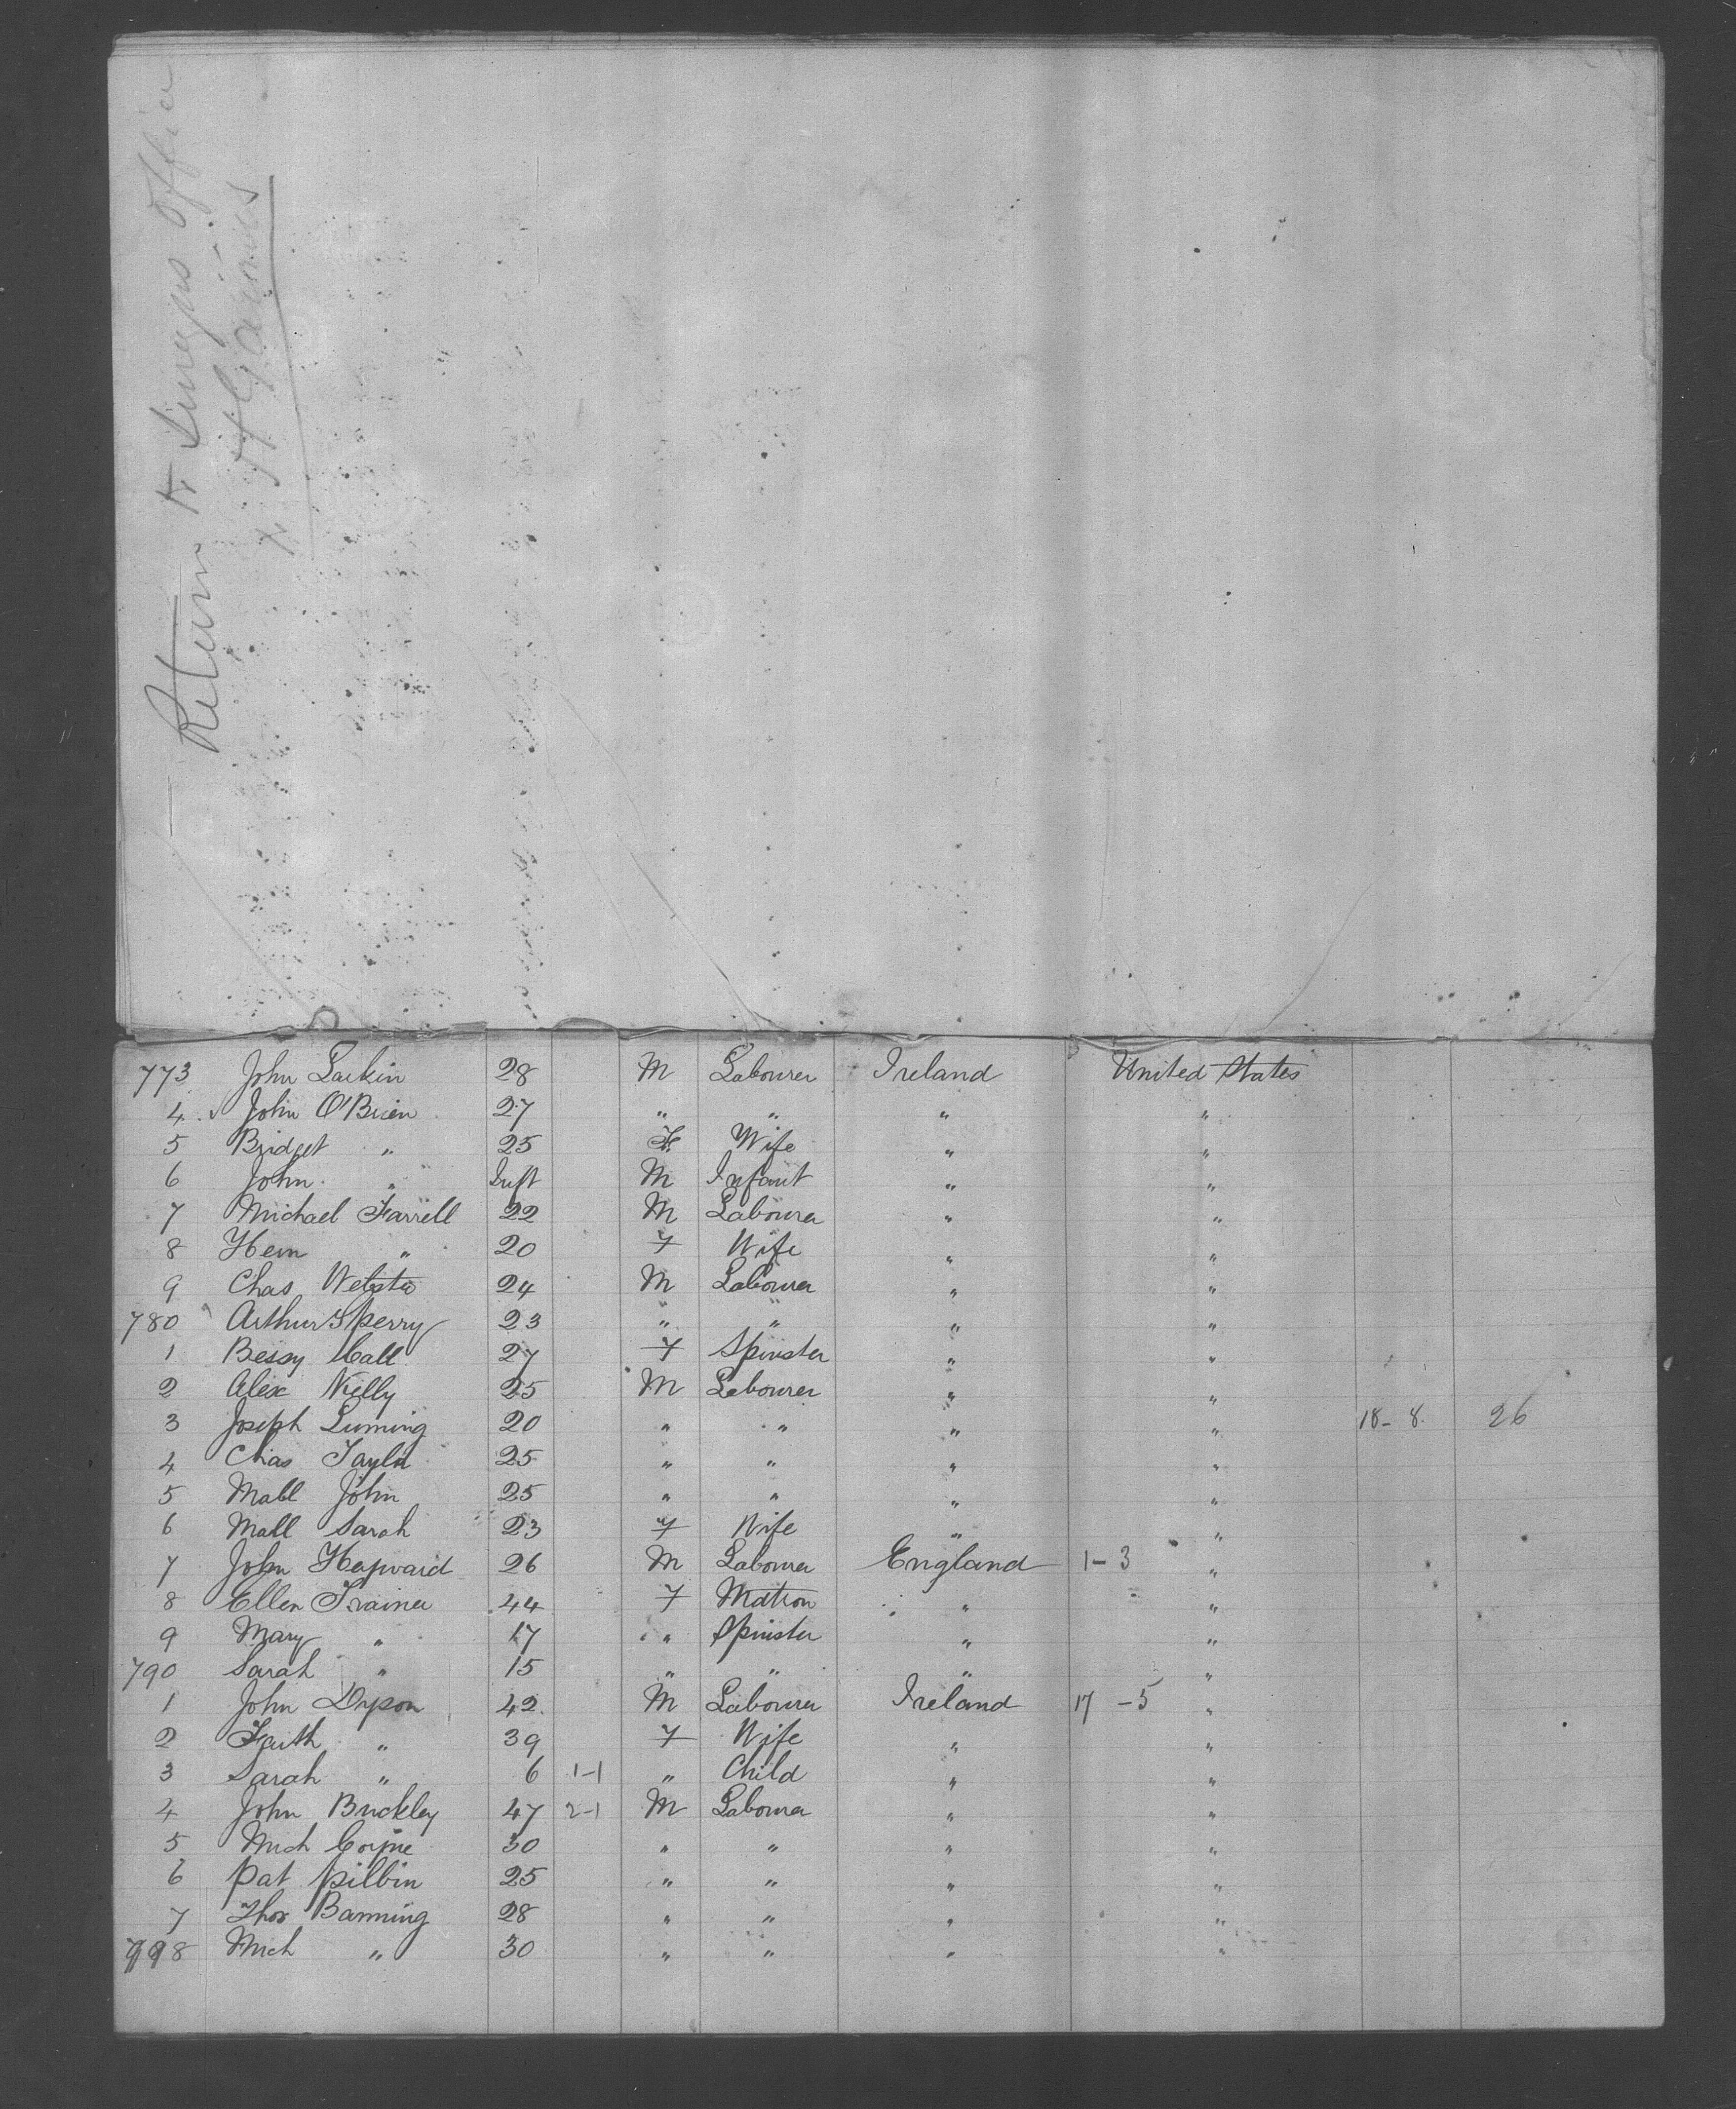 Return to Surveyors Office
773 John Larkin 28 M Labourer Ireland United States
4 John O'Brien 27 " " " "
5 Bridget " 25 F Wife " "
6 John " Inft M Infant " "
7 Michael Farrell 22 M Labourer " "
8 " 20 F Wife " "
9 Chas Webster 24 M Labourer " "
780 Arthur Sperry 23 " " " "
1 Bessy Call 27 F Spinster " "
2 Alex Kielly 25 M Labourer " "
3 Joseph 20 " " " " 18-8 26
4 Chas Taylor 25 " " " "
5 Mall John 25 " " " "
6 Mall Sarah 23 F Wife " "
7 John Hayward 26 M Labourer England 1-3 "
8 Ellen Trainer 44 F Matron " "
9 Mary " 17 " Spinster " "
790 Sarah " 15 " " " "
1 John Dyson 42 M Labourer Ireland 17-5 "
2 Faith " 39 F Wife " "
3 Sarah " 6 1-1 " Child " "
4 John Buckley 47 2-1 M Labourer " "
5 Mich Coyne 30 " " " "
6 Pat Pilbin 25 " " " "
7 Thos Banning 28 " " " "
798 Mich " 30 " " " "